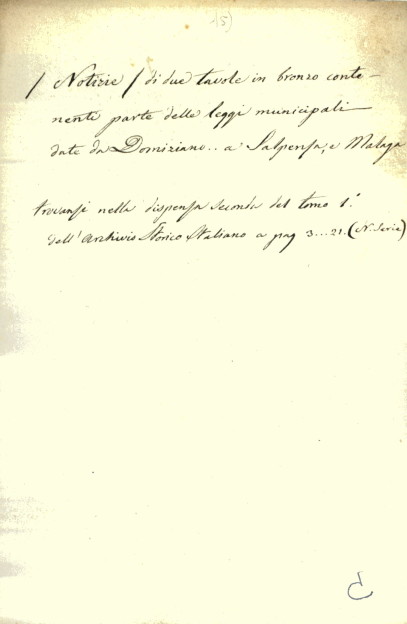 (5)
/ Notizie / di due tavole in bronzo conte-
nenti parte delle leggi municipali
date da Domiziano.. a Salpensa, e Malaga
trovansi nella dispensa seconda del tomo 1.°
dell'Archivio Storico Italiano a pag 3...21. (N. Serie)